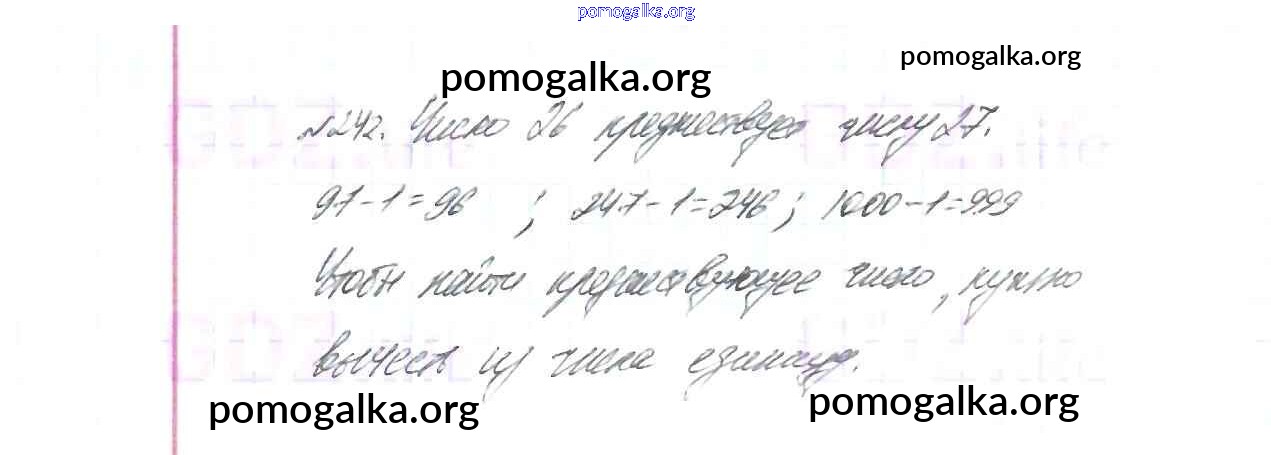 pomogalka.org
pomogalka.org
pomogalka.org
№242. Число 26 предшествует числу 27.
97-1=96 ; 247-1=246; 1000-1=999
Чтобы найти предшествующее число, нужно
вычесть из числа единицу.
pomogalka.org
pomogalka.org